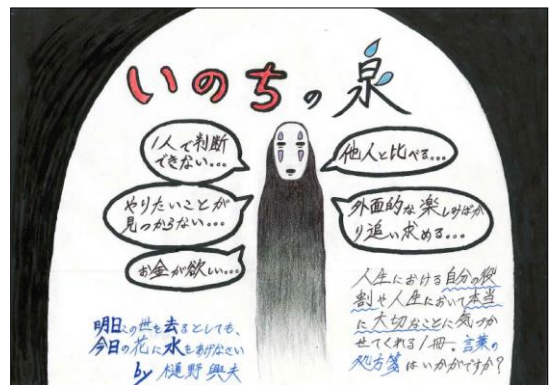 いのちの泉
1人で判断
できない...
他人と比べる...
やりたいことが
見つからない...
外面的な楽しみばか
り追い求める...
お金が欲しい...
明日この世を去るとしても、
今日の花に水をあげなさい
by 樋野興夫
人生における自分の役
割や人生において本当
に大切なことに気づか
せてくれる1冊。言葉の
処方箋はいかがですか?